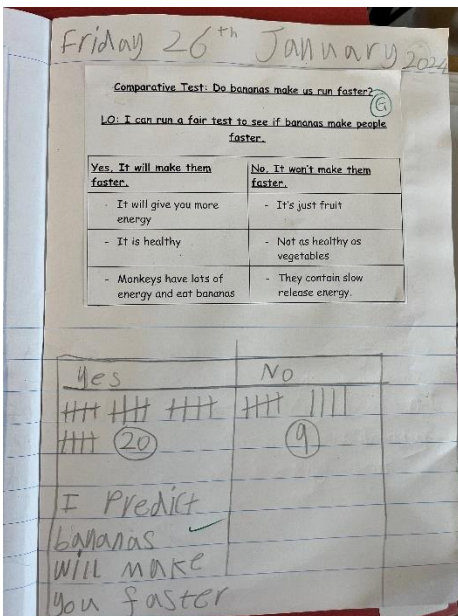 Friday 26th January 2024
Comparative Test: Do bananas make us run faster?
G
LO: I can run a fair test to see if bananas make people
faster.
Yes. It will make them
faster.
No. It won't make them
faster.
- It will give you more
energy
- It's just fruit
- It is healthy
- Not as healthy as
vegetables
- Monkeys have lots of
energy and eat bananas
- They contain slow
release energy.
Yes
No
20
9
I Predict
bananas
will make
you faster